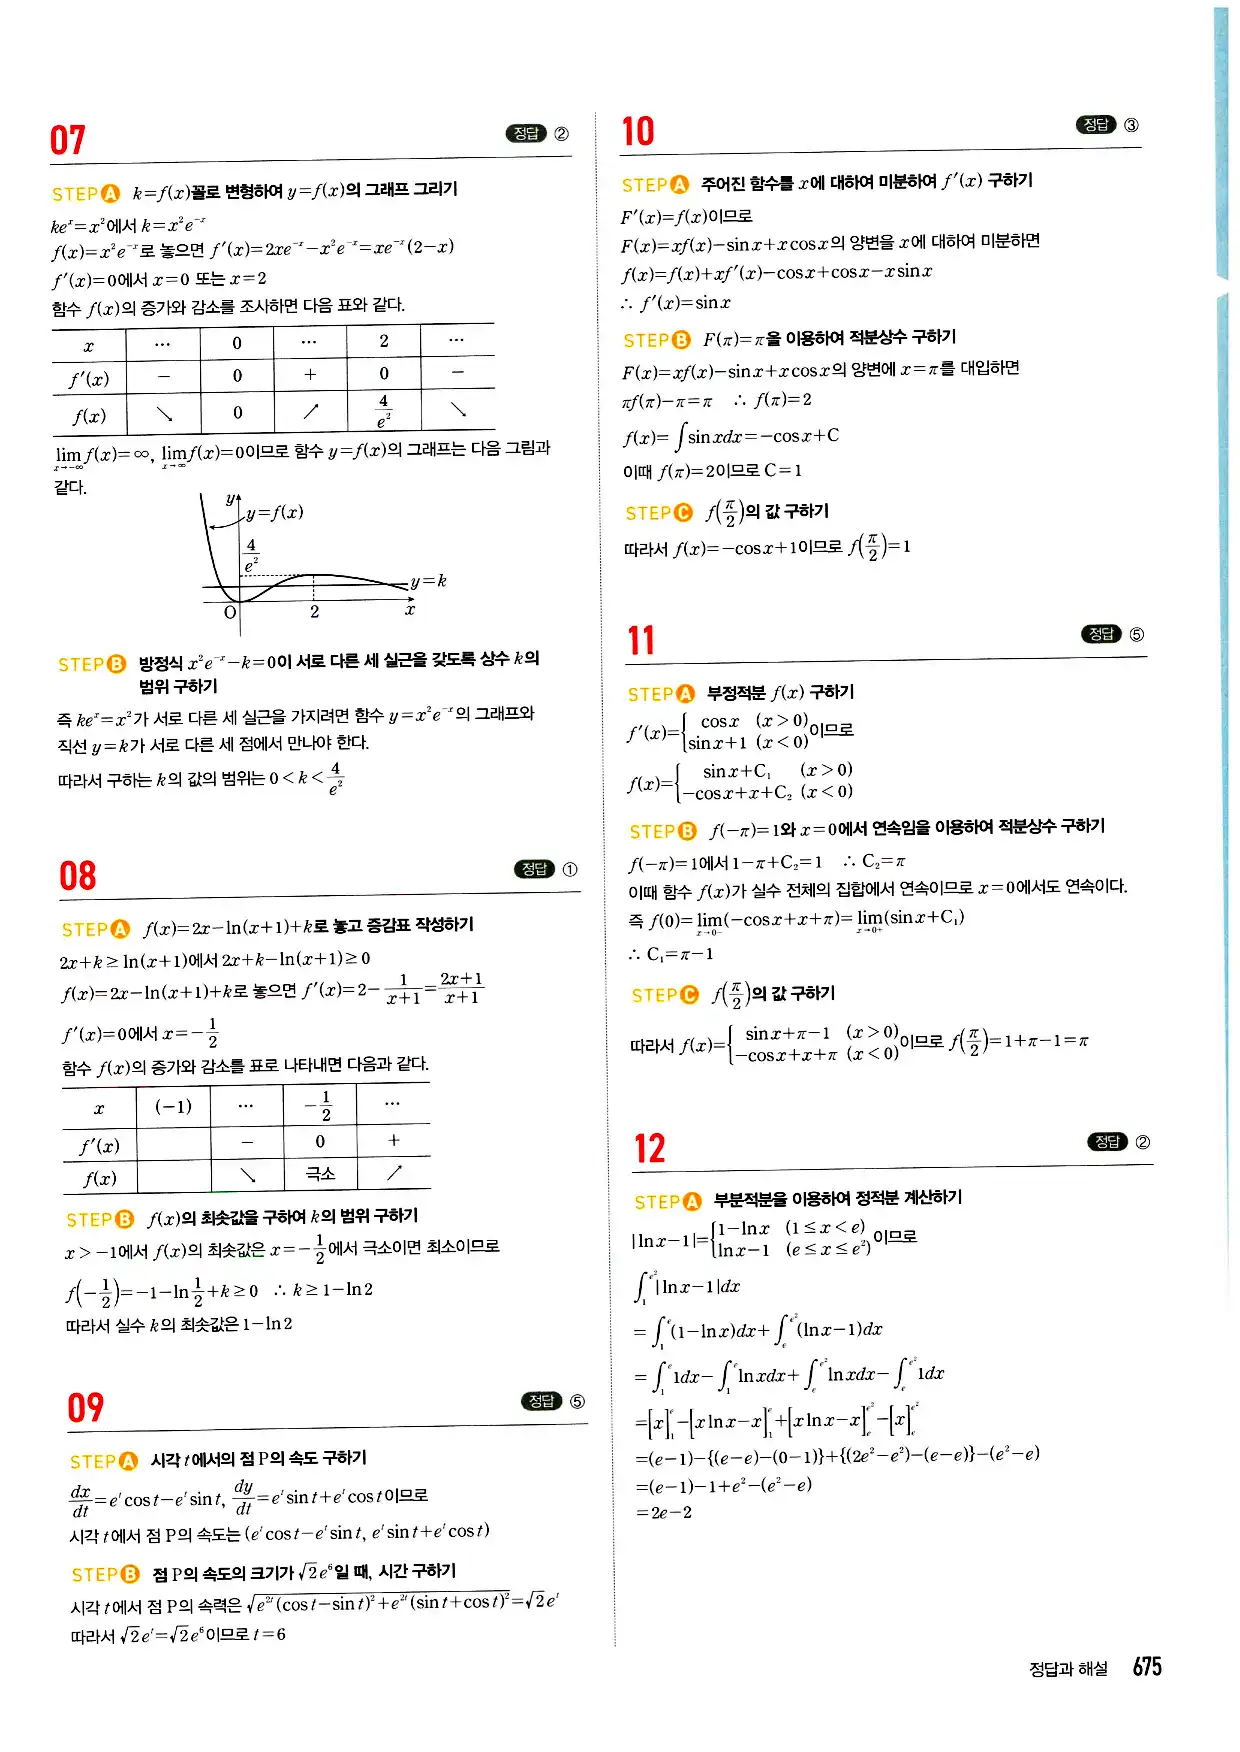 07 정답 ②
STEP A k=f(x)꼴로 변형하여 y=f(x)의 그래프 그리기
ke^x=x²에서 k=x²e^{-x}
f(x)=x²e^{-x}로 놓으면 f′(x)=2xe^{-x}-x²e^{-x}=xe^{-x}(2-x)
f′(x)=0에서 x=0 또는 x=2
함수 f(x)의 증가와 감소를 조사하면 다음 표와 같다.
x … 0 … 2 …
f′(x) - 0 + 0 -
f(x) ↘ 0 ↗ 4/e² ↘
lim_{x→-∞} f(x)=∞, lim_{x→∞} f(x)=0이므로 함수 y=f(x)의 그래프는 다음 그림과
같다.
y
y=f(x)
4/e²
y=k
O 2 x
STEP B 방정식 x²e^{-x}-k=0이 서로 다른 세 실근을 갖도록 상수 k의
범위 구하기
즉 ke^x=x²가 서로 다른 세 실근을 가지려면 함수 y=x²e^{-x}의 그래프와
직선 y=k가 서로 다른 세 점에서 만나야 한다.
따라서 구하는 k의 값의 범위는 0<k<4/e²
08 정답 ①
STEP A f(x)=2x-ln(x+1)+k로 놓고 증감표 작성하기
2x+k≥ln(x+1)에서 2x+k-ln(x+1)≥0
f(x)=2x-ln(x+1)+k로 놓으면 f′(x)=2-1/(x+1)=(2x+1)/(x+1)
f′(x)=0에서 x=-1/2
함수 f(x)의 증가와 감소를 표로 나타내면 다음과 같다.
x (-1) … -1/2 …
f′(x) - 0 +
f(x) ↘ 극소 ↗
STEP B f(x)의 최솟값을 구하여 k의 범위 구하기
x>-1에서 f(x)의 최솟값은 x=-1/2에서 극소이면 최소이므로
f(-1/2)=-1-ln1/2+k≥0 ∴ k≥1-ln2
따라서 실수 k의 최솟값은 1-ln2
09 정답 ⑤
STEP A 시각 t에서의 점 P의 속도 구하기
dx/dt=e^t cos t-e^t sin t, dy/dt=e^t sin t+e^t cos t이므로
시각 t에서 점 P의 속도는 (e^t cos t-e^t sin t, e^t sin t+e^t cos t)
STEP B 점 P의 속도의 크기가 √2e⁶일 때, 시간 구하기
시각 t에서 점 P의 속력은 √(e^{2t}(cos t-sin t)²+e^{2t}(sin t+cos t)²)=√2e^t
따라서 √2e^t=√2e⁶이므로 t=6
10 정답 ③
STEP A 주어진 함수를 x에 대하여 미분하여 f′(x) 구하기
F′(x)=f(x)이므로
F(x)=xf(x)-sin x+x cos x의 양변을 x에 대하여 미분하면
f(x)=f(x)+xf′(x)-cos x+cos x-x sin x
∴ f′(x)=sin x
STEP B F(π)=π을 이용하여 적분상수 구하기
F(x)=xf(x)-sin x+x cos x의 양변에 x=π를 대입하면
πf(π)-π=π ∴ f(π)=2
f(x)=∫sin xdx=-cos x+C
이때 f(π)=2이므로 C=1
STEP C f(π/2)의 값 구하기
따라서 f(x)=-cos x+1이므로 f(π/2)=1
11 정답 ⑤
STEP A 부정적분 f(x) 구하기
f′(x)={cos x (x>0) sin x+1 (x<0)이므로
f(x)={sin x+C₁ (x>0) -cos x+x+C₂ (x<0)
STEP B f(-π)=1와 x=0에서 연속임을 이용하여 적분상수 구하기
f(-π)=1에서 1-π+C₂=1 ∴ C₂=π
이때 함수 f(x)가 실수 전체의 집합에서 연속이므로 x=0에서도 연속이다.
즉 f(0)=lim_{x→0-}(-cos x+x+π)=lim_{x→0+}(sin x+C₁)
∴ C₁=π-1
STEP C f(π/2)의 값 구하기
따라서 f(x)={sin x+π-1 (x>0) -cos x+x+π (x<0)이므로 f(π/2)=1+π-1=π
12 정답 ②
STEP A 부분적분을 이용하여 정적분 계산하기
|ln x-1|={1-ln x (1≤x<e) ln x-1 (e≤x≤e²)이므로
∫₁^{e²}|ln x-1|dx
=∫₁^e(1-ln x)dx+∫_e^{e²}(ln x-1)dx
=∫₁^e 1dx-∫₁^e ln xdx+∫_e^{e²} ln xdx-∫_e^{e²} 1dx
=[x]₁^e-[x ln x-x]₁^e+[x ln x-x]_e^{e²}-[x]_e^{e²}
=(e-1)-{(e-e)-(0-1)}+{(2e²-e²)-(e-e)}-(e²-e)
=(e-1)-1+e²-(e²-e)
=2e-2
정답과 해설 675